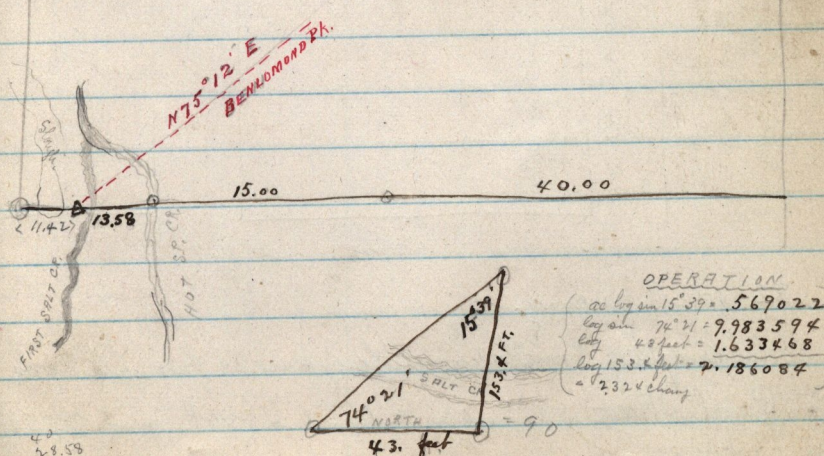 N 75° 12' E
BENLOMOND PK.
15.00
40.00
< 11.42 >
13.58
FIRST SALT CR.
HOT SP. CR.
15° 39'
153.4 FT.
SALT CR.
74° 21'
NORTH
43. feet
= 90
OPERATION
ac log sin 15° 39' = .569022
log sin 74° 21' = 9.983594
log 43 feet = 1.633468
log 153.4 feet = 2.186084
= 2.324 chains
40
28.58